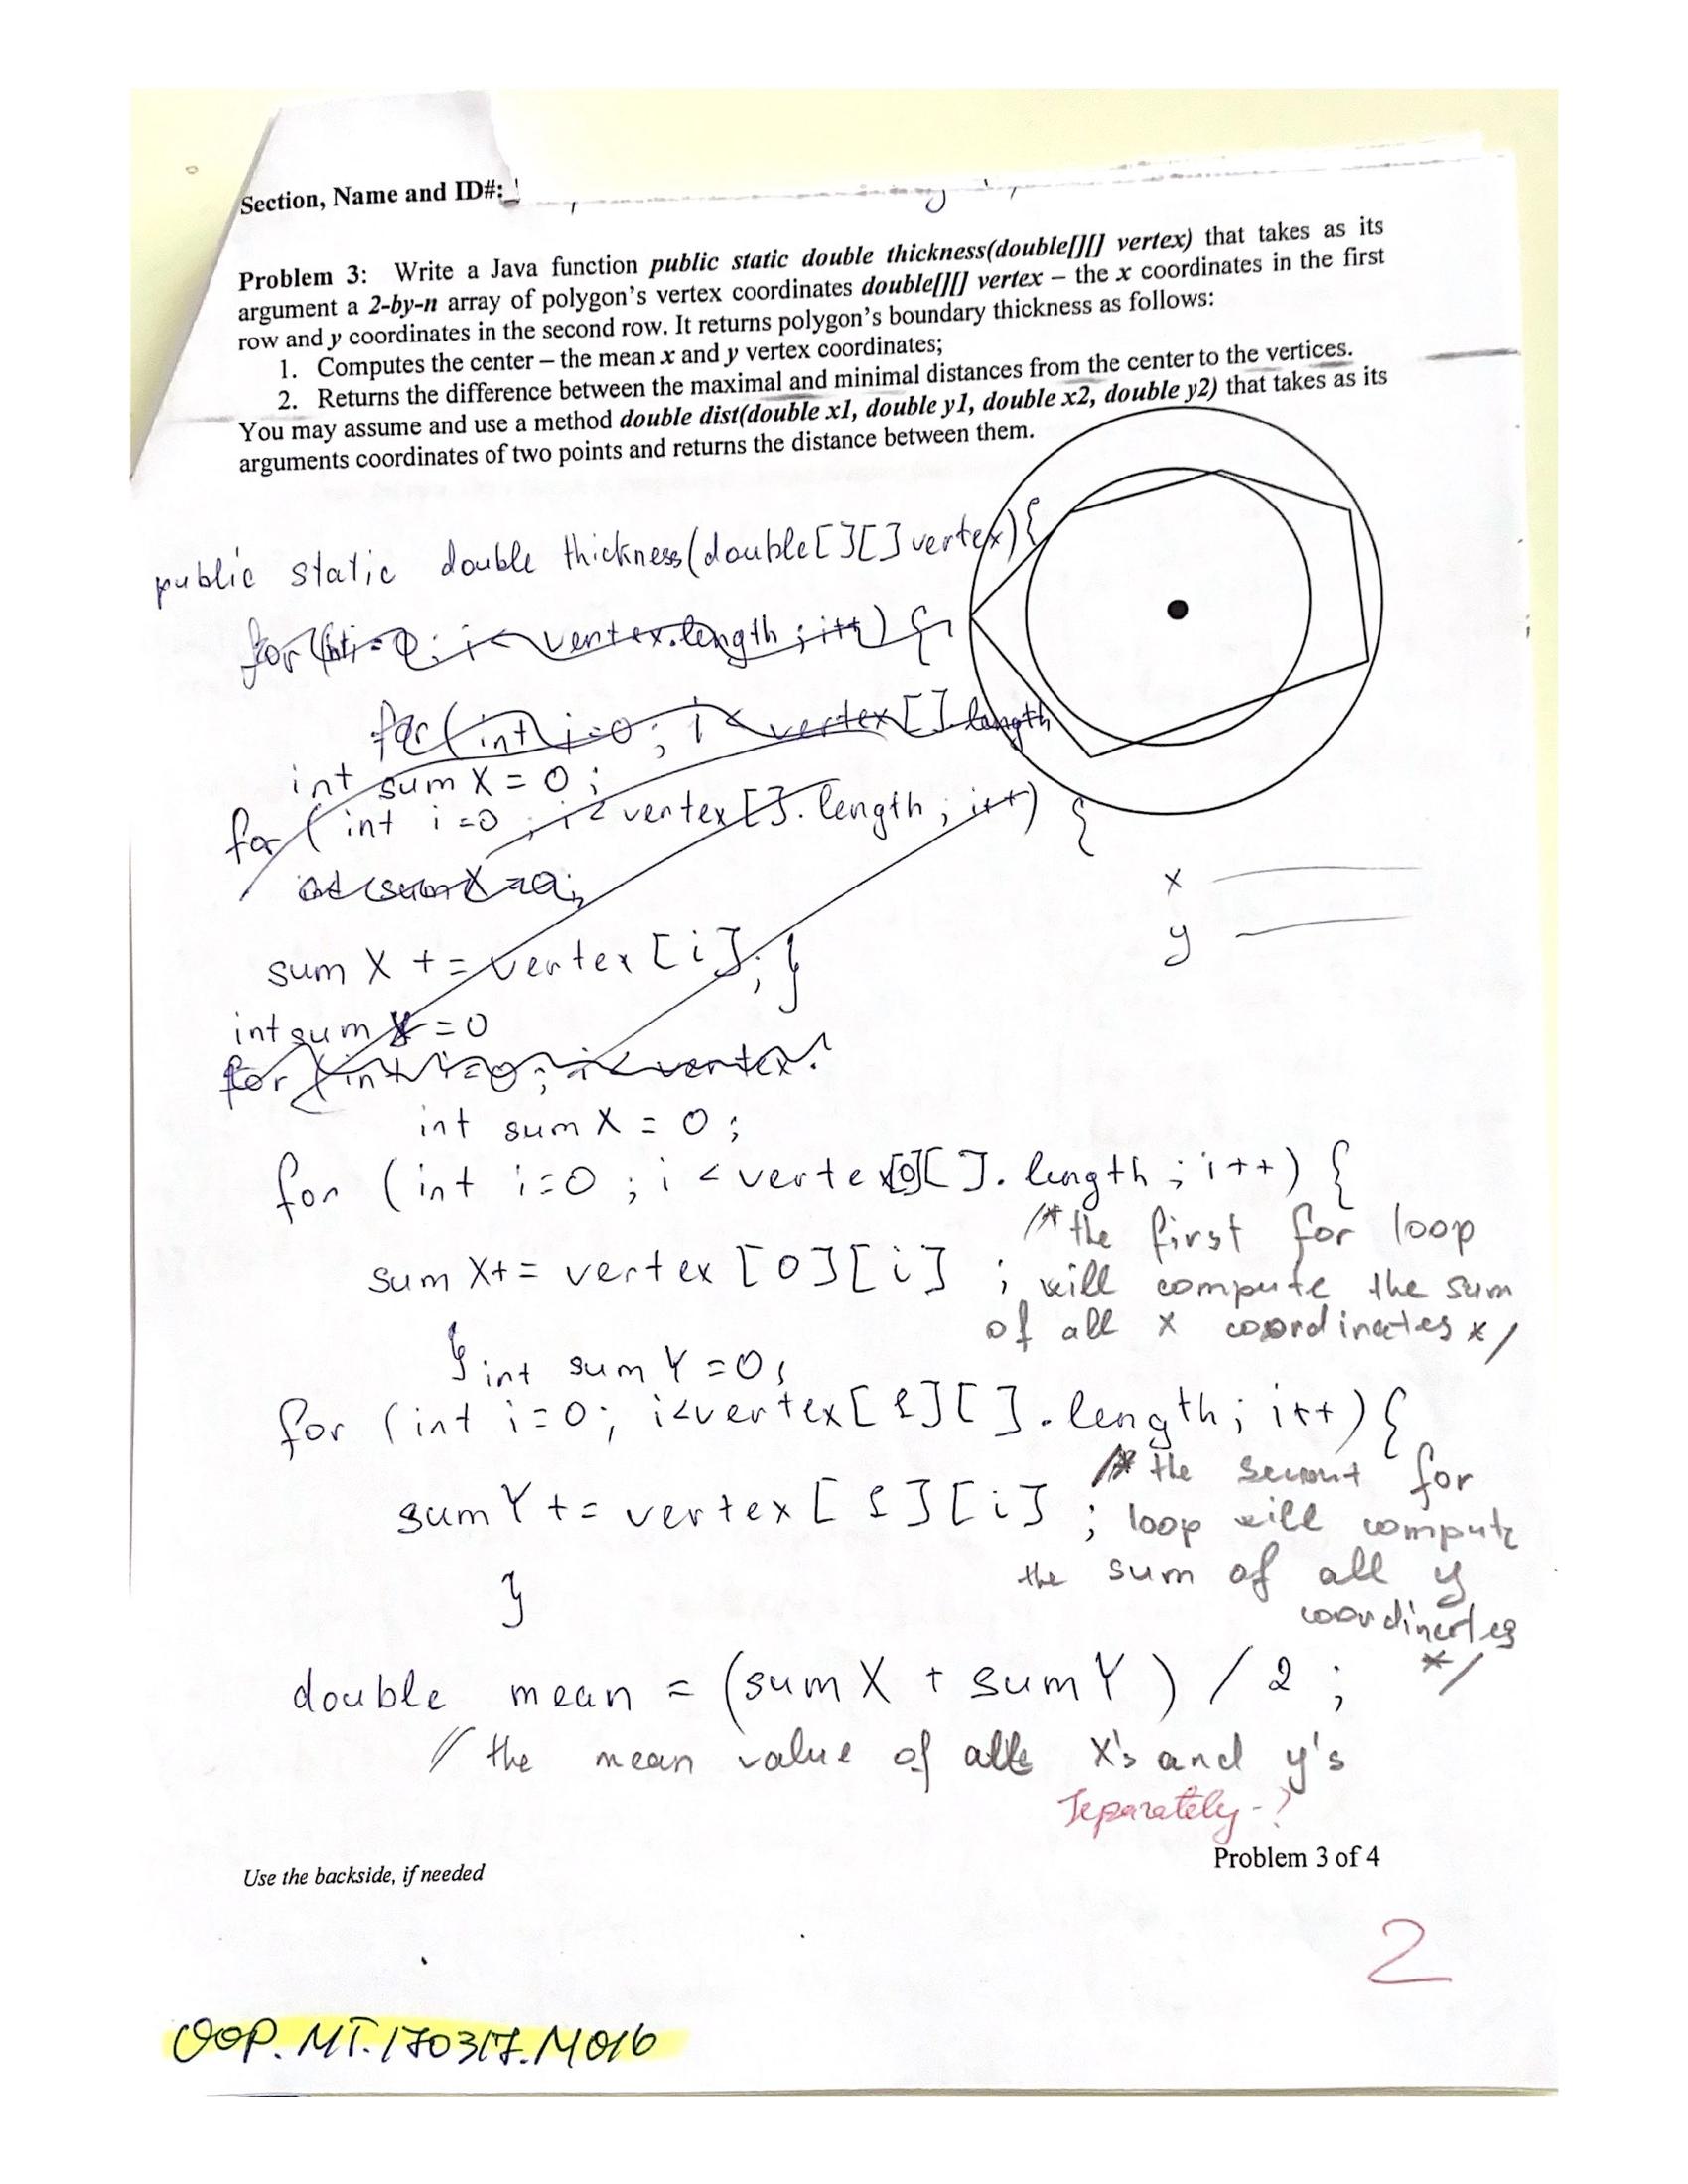 Section, Name and ID#:
Problem 3: Write a Java function public static double thickness(double[][] vertex) that takes as its
argument a 2-by-n array of polygon's vertex coordinates double[][] vertex – the x coordinates in the first
row and y coordinates in the second row. It returns polygon's boundary thickness as follows:
1. Computes the center – the mean x and y vertex coordinates;
2. Returns the difference between the maximal and minimal distances from the center to the vertices.
You may assume and use a method double dist(double x1, double y1, double x2, double y2) that takes as its
arguments coordinates of two points and returns the distance between them.
public static double thickness(double[][] vertex){
for (int i=0; i< vertex.length; i++) {
for (int i=0; i < vertex[].length
int sum X = 0;
for ( int i=0 ; i< vertex[].length; i++) {
int sum X = 0;
x
y
sum X += vertex [i]; }
int sum Y=0
for (int i=0; i<vertex.
int sum X = 0;
for ( int i=0 ; i < vertex[0][]. length ; i++) {
/* the first for loop
sum X+= vertex [0][i] ; will compute the sum
of all x coordinates */
} int sum Y=0;
for (int i=0; i<vertex[1][].length; i++){
/* the secont for
sum Y+= vertex [1][i] ; loop will compute
the sum of all y
} coordinates
*/
double mean = (sum X + sum Y) / 2 ;
// the mean value of all x's and y's
Separately-?
Problem 3 of 4
Use the backside, if needed
2
OOP.MT.170317.M016